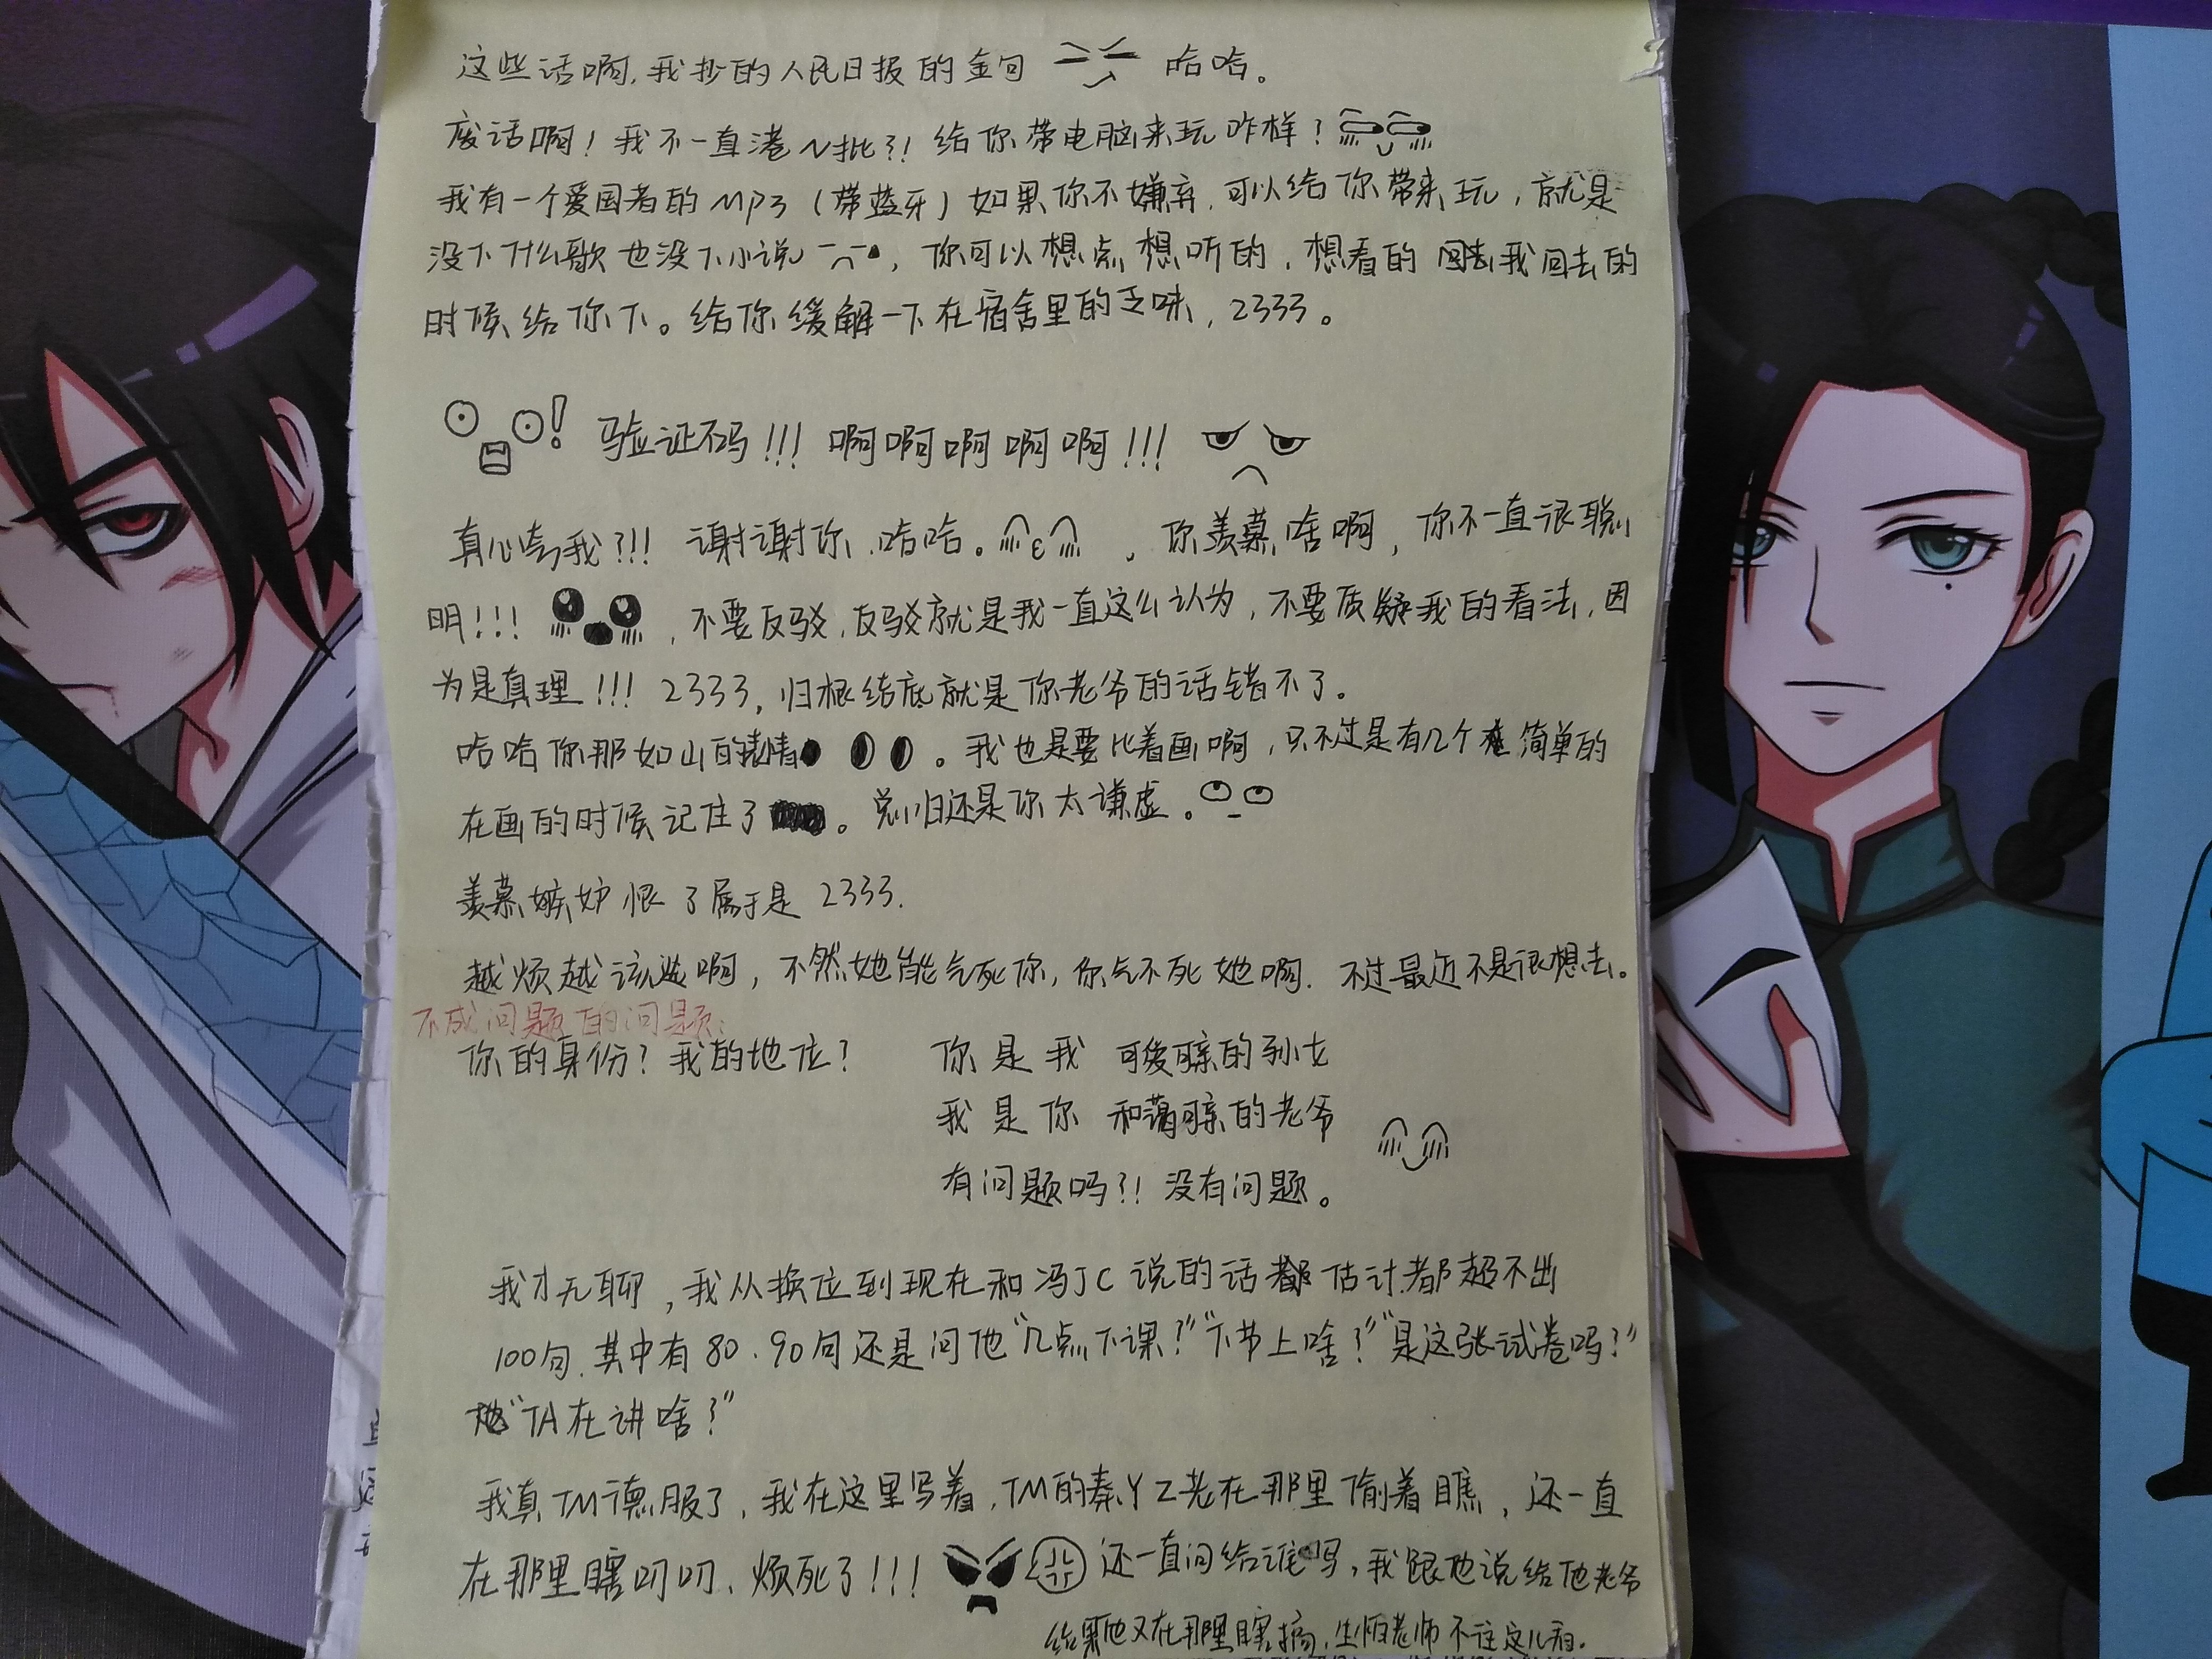 这些话啊,我抄的人民日报的金句 哈哈。
废话啊!我不一直港N批?!给你带电脑来玩咋样?
我有一个爱国者的MP3(带蓝牙)如果你不嫌弃,可以给你带来玩,就是
没下什么歌也没下小说,你可以想点想听的,想看的 我回去的
时候给你下。给你缓解一下在宿舍里的乏味,2333。
验证码!!!啊啊啊啊啊!!!
真心夸我?!!谢谢你,哈哈。,你羡慕啥啊,你不一直很聪
明!!!,不要反驳,反驳就是我一直这么认为,不要质疑我的看法,因
为是真理!!!2333,归根结底就是你老爷的话错不了。
哈哈你那如山的表情 。我也是要比着画啊,只不过是有几个简单的
在画的时候记住了。总归还是你太谦虚。
羡慕嫉妒恨了属于是2333.
越烦越该选啊,不然她能气死你,你气不死她啊.不过最近不是很想去。
不成问题的问题:
你的身份?我的地位? 你是我 可爱可亲的孙女
我是你 和蔼可亲的老爷
有问题吗?!没有问题。
我才无聊,我从换位到现在和冯JC说的话都估计都超不出
100句.其中有80、90句还是问他“几点下课?”“下节上啥?”“是这张试卷吗?”
“TA在讲啥?”
我真TM德服了,我在这里写着,TM的秦YZ老在那里偷着瞧,还一直
在那里瞎叨叨、烦死了!!!还一直问给谁吗,我跟他说给他老爷
结果他又在那里瞎搞,生怕老师不往这儿看.